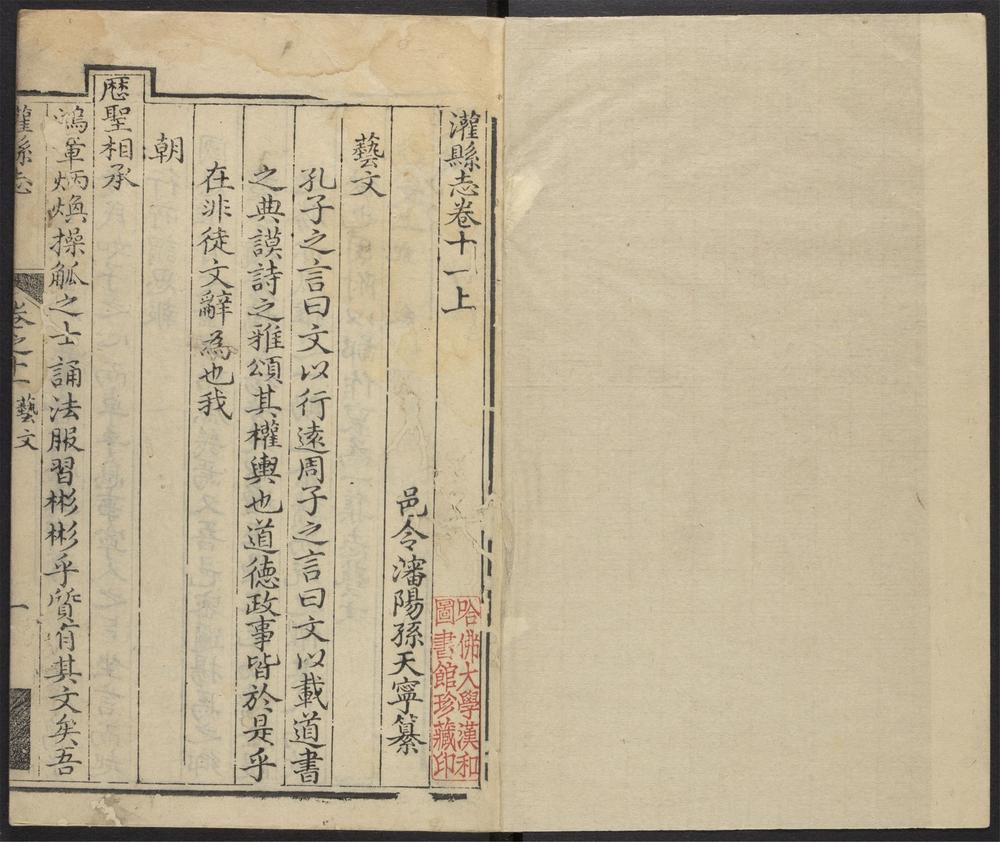 灌縣志卷十一上
邑令瀋陽孫天寧纂
藝文
孔子之言曰文以行遠周子之言曰文以載道書
之典謨詩之雅頌其權輿也道德政事皆於是乎
在非徒文辭為也我
朝
歷聖相承
鴻軍炳煥操觚之士誦法服習彬彬乎質有其文矣吾
灌縣志 卷之十一 藝文 一
哈佛大學漢和
圖書館珍藏印